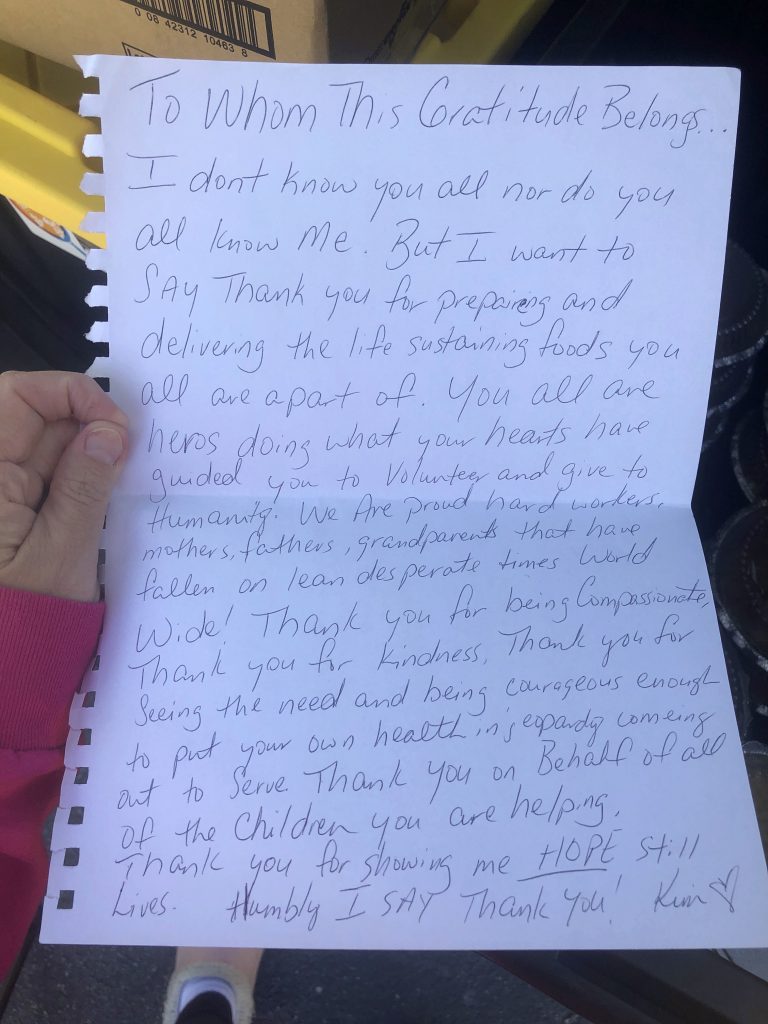 0 08 42312 10463 8
To Whom This Gratitude Belongs...
I dont know you all nor do you
all know Me. But I want to
SAY Thank you for prepaireng and
delivering the life sustaining foods you
all are apart of. You all are
heros doing what your hearts have
guided you to Volunteer and give to
Humanity. We Are proud hard workers,
mothers, fathers, grandparents that have
fallen on lean desperate times World
Wide! Thank you for being Compassionate,
Thank you for Kindness, Thank you for
Seeing the need and being courageous enough
to put your own health in jeopardy comeing
out to Serve. Thank You on Behalf of all
of the Children you are helping.
Thank you for showing me HOPE Still
Lives. Humbly I SAY Thank You! Kim ♡